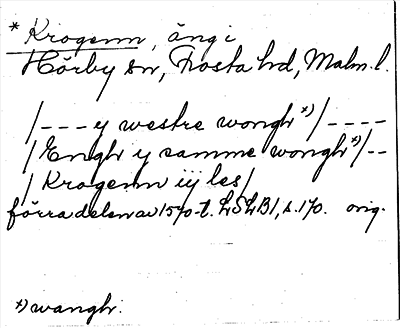 * Krogenn, äng i
Hörby sn, Frosta hd, Malm. l.
/--- y westre wongh *)/----
/Engh y samme wongh *)/--
/Krogenn iij les/
förra delen av 1570-t. LSLB1, s. 170. orig.
*) wangh.